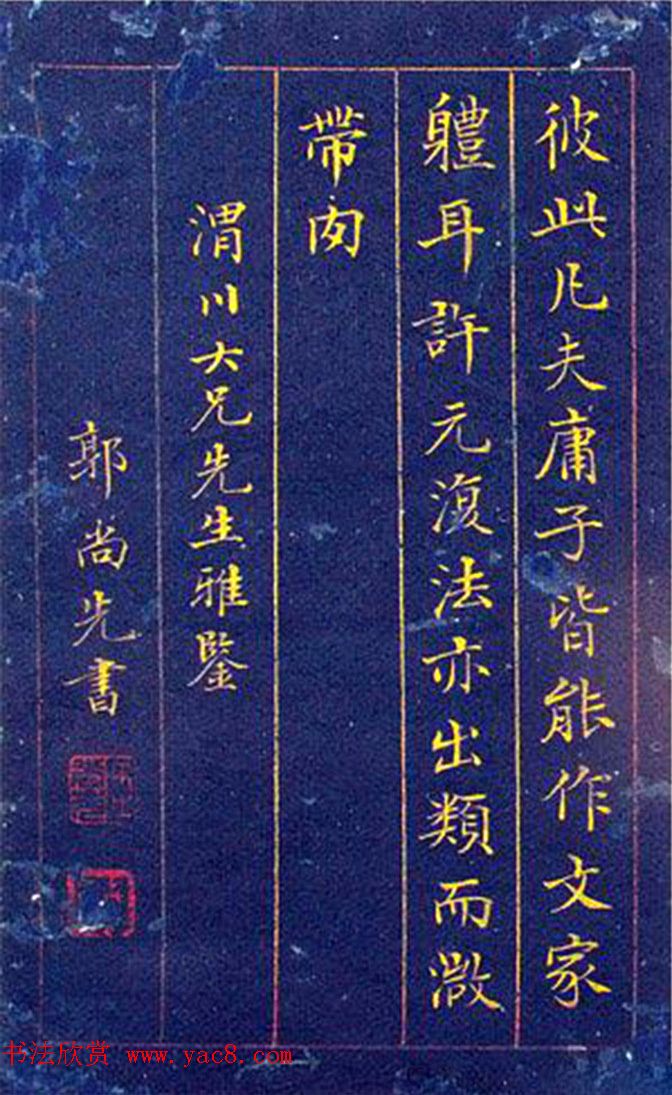 彼此凡夫庸子皆能作文家
軆耳許元復法亦出類而微
帶肉
渭川大兄先生雅鑒
郭尚先書
书法欣赏 www.yac8.com